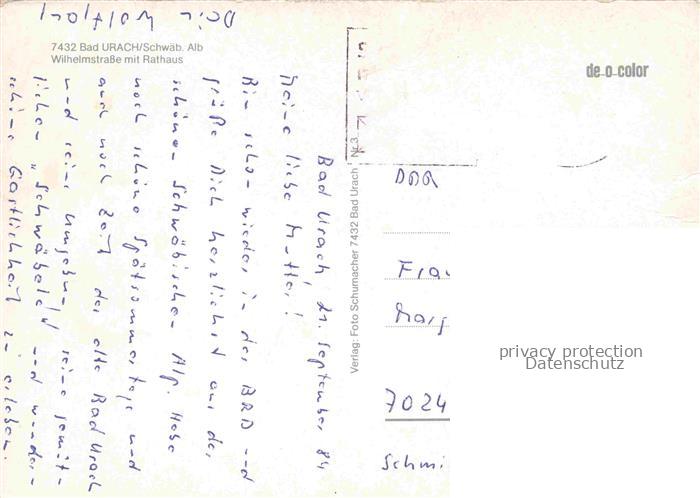 7432 Bad URACH/Schwäb. Alb
Wilhelmstraße mit Rathaus
Bad Urach, 21. September 84
Meine liebe Mutter!
Bin schon wieder in der BRD und
grüße Dich herzlichst aus der
schönen Schwäbischen Alp. Habe
noch schöne Spätsommertage und
auch noch Zeit das alte Bad Urach
und seine Umgebung, seine gemüt-
lichen "Schwäbele" und wunder-
schöne Gastlichkeit zu erleben.
Dein Wolfgang
Verlag: Foto Schumacher 7432 Bad Urach Nr.3
de-o-color
DDR
Frau
Marg
7024
Schmi
privacy protection
Datenschutz